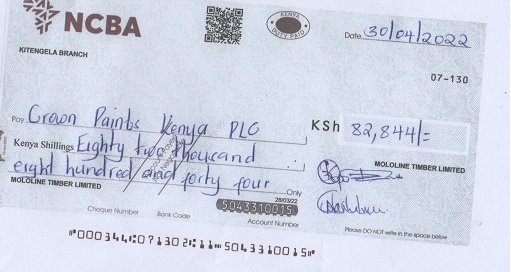 NCBA
KENYA
DUTY PAID
Date 30/04/2022
KITENGELA BRANCH
07-130
Pay Crown Paints Kenya PLC
KSh 82,844/=
Kenya Shillings Eighty two thousand
eight hundred and forty four Only
MOLOLINE TIMBER LIMITED
MOLOLINE TIMBER LIMITED
28/03/22
5043310015
Cheque Number Bank Code Account Number
Please DO NOT write in the space below
"000344⑆071302⑆11⑉5043310015⑈